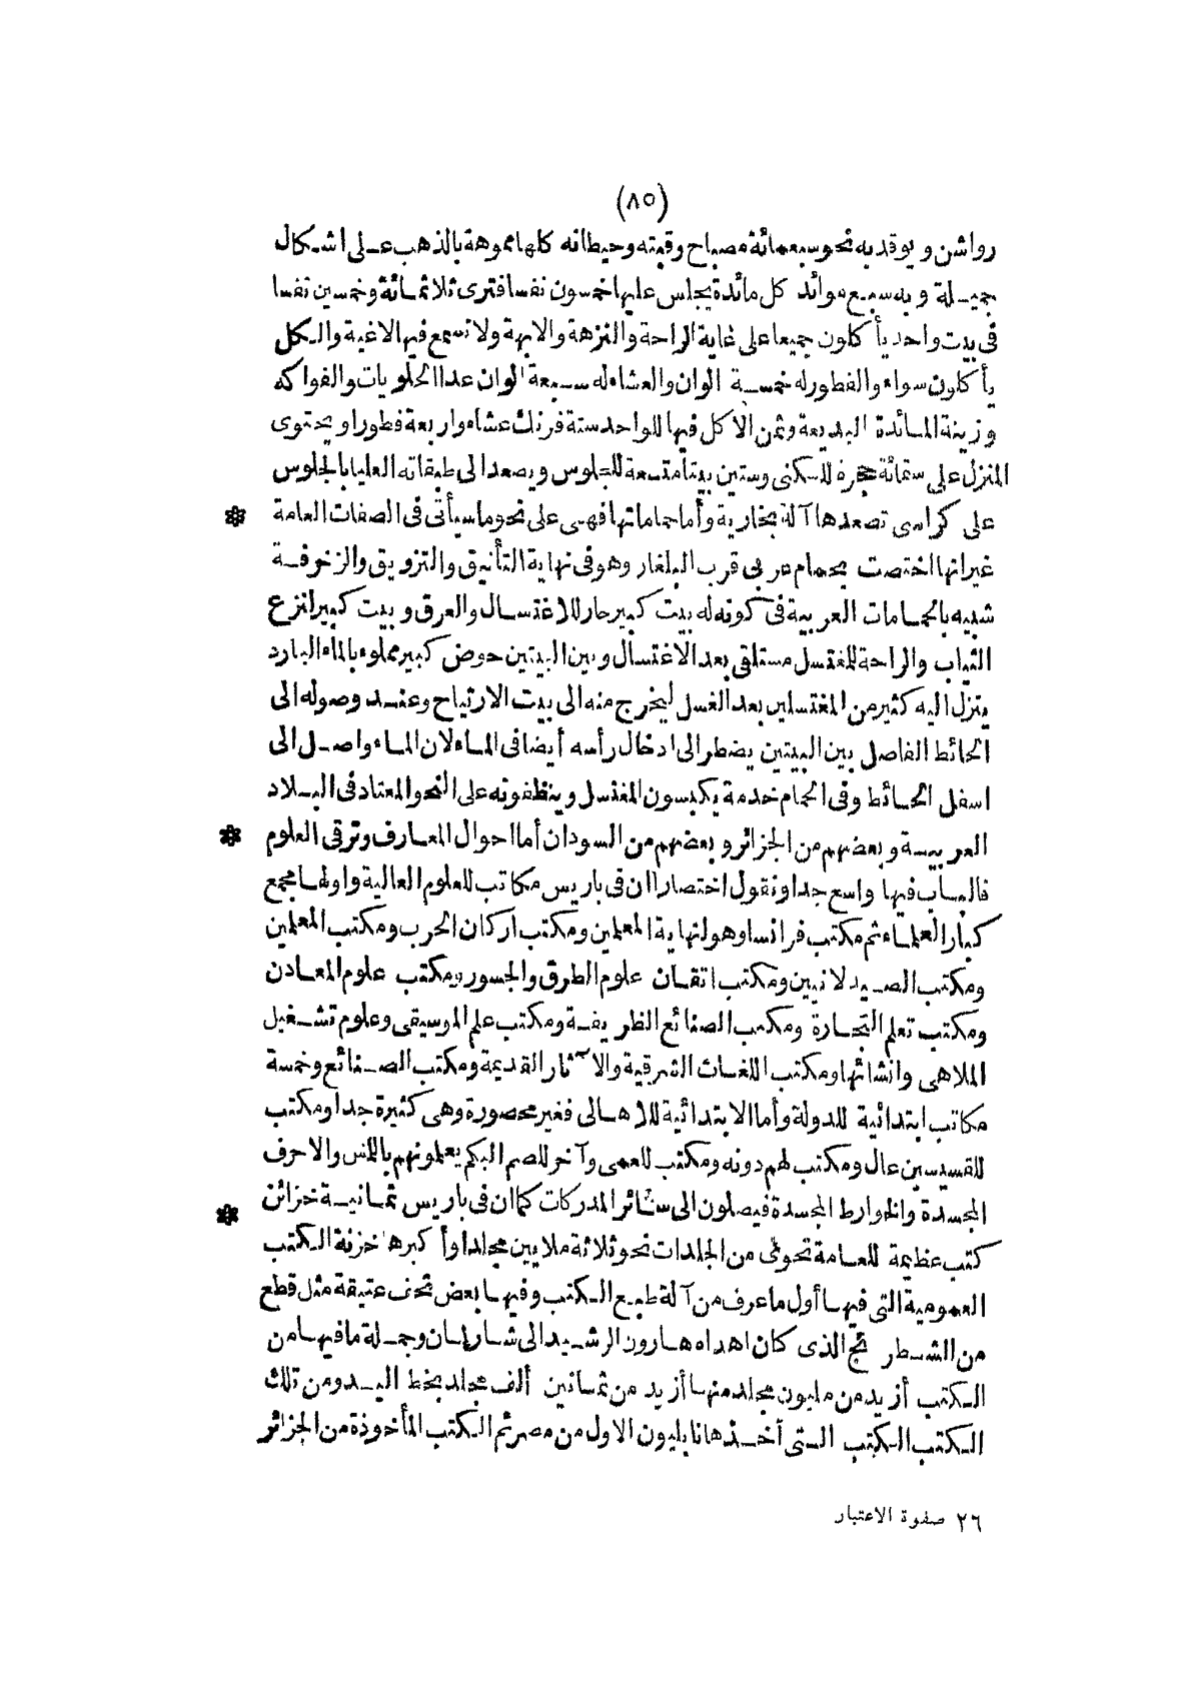 (٨٥)
رواشن ويوقد به نحو سبعمائة مصباح وقبته وحيطانه كلها مموهة بالذهب على اشكال
جميلة وبه سبع موائد كل مائدة يجلس عليها خمسون نفسا فترى ثلاثمائة وخمسين نفسا
فى بيت واحد يأكلون جميعا على غاية الراحة والنزهة والابهة ولا تسمع فيها لاغية والكل
يأكلون سواء والفطور له خمسة الوان والعشاء له سبعة الوان عدا الحلويات والفواكه
وزينة المائدة البديعة وثمن الاكل فيها للواحد ستة فرنك عشاء واربعة فطورا ويحتوى
المنزل على ستمائة حجرة للسكنى وستين بيتا متسعة للجلوس ويصعد الى طبقاته العليا بالجلوس
على كراسى تصعدها آلة بخارية وأما حماماتها فهى على نحو ما سيأتى فى الصفات العامة *
غير انها اختصت بحمام عربى قرب البلفار وهو فى نهاية التأنيق والتزويق والزخرفة
شبيه بالحمامات العربية فى كونه له بيت كبير حار للاغتسال والعرق وبيت كبير لنزع
الثياب والراحة للمغتسل مستلقى بعد الاغتسال وبين البيتين حوض كبير مملوء بالماء البارد
ينزل اليه كثير من المغتسلين بعد الغسل ليخرج منه الى بيت الارتياح وعند وصوله الى
الحائط الفاصل بين البيتين يضطر الى ادخال رأسه أيضا فى الماء لان الماء واصل الى
اسفل الحائط وفى الحمام خدمة يكبسون المغتسل وينظفونه على النحو المعتاد فى البلاد
العربية وبعضهم من الجزائر وبعضهم من السودان أما احوال المعارف وترقى العلوم *
فالباب فيها واسع جدا ونقول اختصارا ان فى باريس مكاتب للعلوم العالية واولها مجمع
كبار العلماء ثم مكتب فرانسا وهو لنهاية المعلمين ومكتب اركان الحرب ومكتب المعلمين
ومكتب الصيدلانيين ومكتب اتقان علوم الطرق والجسور ومكتب علوم المعادن
ومكتب تعلم التجارة ومكتب الصنائع الظريفة ومكتب علم الموسيقى وعلوم تشغيل
الملاهى وانشائها ومكتب اللغات الشرقية والآثار القديمة ومكتب الصنائع وخمسة
مكاتب ابتدائية للدولة وأما الابتدائية للاهالى فغير محصورة وهى كثيرة جدا ومكتب
للقسيسين عال ومكتب لهم دونه ومكتب للعمى وآخر للصم البكم يعلمونهم باللمس والاحرف
المجسدة والخوارط المجسدة فيصلون الى سائر المدركات كما ان فى باريس ثمانية خزائن *
كتب عظيمة للعامة تحوى من المجلدات نحو ثلاثة ملايين مجلدا وأكبرها خزنة الكتب
العمومية التى فيها أول ما عرف من آلة طبع الكتب وفيها بعض تحف عتيقة مثل قطع
من الشطرنج الذى كان اهداه هارون الرشيد الى شارلمان وجملة ما فيها من
الكتب أزيد من مليون مجلد منها أزيد من ثمانين ألف مجلد بخط اليد ومن تلك
الكتب الكتب التى أخذها نابليون الاول من مصر ثم الكتب المأخوذة من الجزائر
٢٦ صفوة الاعتبار